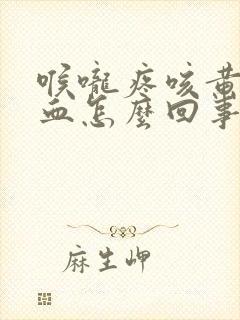 喉嚨疼咳黃
血怎麼回事
麻生岬